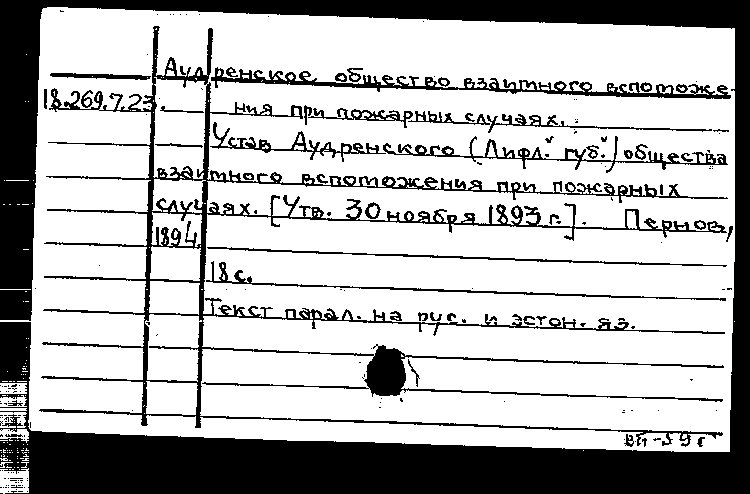 Аудренское общество взаимного вспоможе-
18.269.7.23. ния при пожарных случаях.
Устав Аудренского (Лифл. губ.) общества
взаимного вспоможения при пожарных
случаях. [Утв. 30 ноября 1893 г.]. Пернов,
1894.
18 с.
Текст парал. на рус. и эстон. яз.